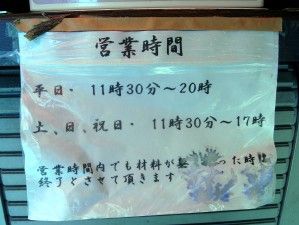 営業時間
平日・ 11時30分～20時
土、日、祝日・ 11時30分～17時
営業時間内でも材料が った時は
終了とさせて頂きます